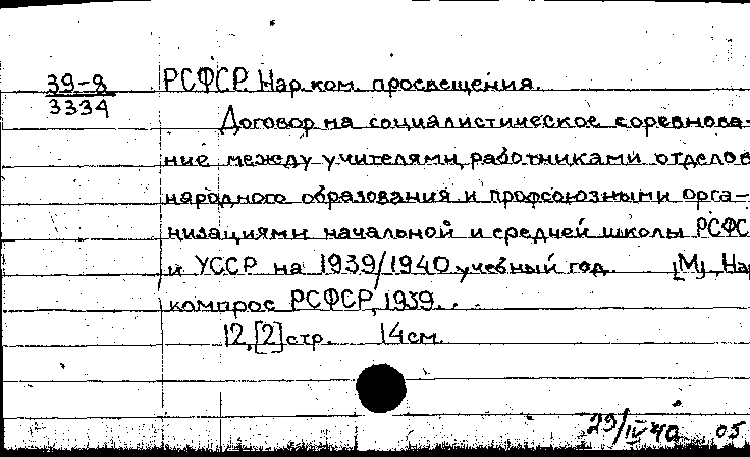 39-8
3334
РСФСР. Нар. ком. просвещения.
Договор на социалистическое соревнова-
ние между учителями, работниками отделов
народного образования и профсоюзными орга-
низациями начальной и средней школы РСФС
и УССР на 1939/1940 учебный год. [М], На
компрос РСФСР, 1939.
12,[2] стр. 14 см.
29/IV 40 05